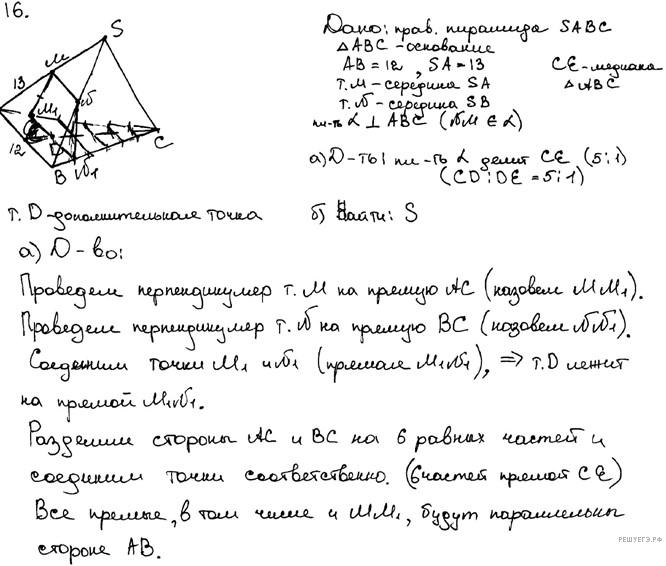 16.
Дано: прав. пирамида SABC
△ABC - основание
AB = 12, SA = 13
CE - медиана
△ABC
т. M - середина SA
т. N - середина SB
пл-ть α ⊥ ABC (NM ∈ α)
а) D-ть: пл-ть α делит CE (5:1)
(CD:DE = 5:1)
т. D - дополнительная точка
б) Найти: S
S
M
13
N
M1
E
12
D
B
N1
C
а) D-во:
Проведем перпендикуляр т. M на прямую AC (назовем MM1).
Проведем перпендикуляр т. N на прямую BC (назовем NN1).
Соединим точки M1 и N1 (прямая M1N1), ⇒ т. D лежит
на прямой M1N1.
Разделим стороны AC и BC на 6 равных частей и
соединим точки соответственно. (6 частей прямой CE)
Все прямые, в том числе и MM1, будут параллельны
стороне AB.
РЕШУЕГЭ.РФ